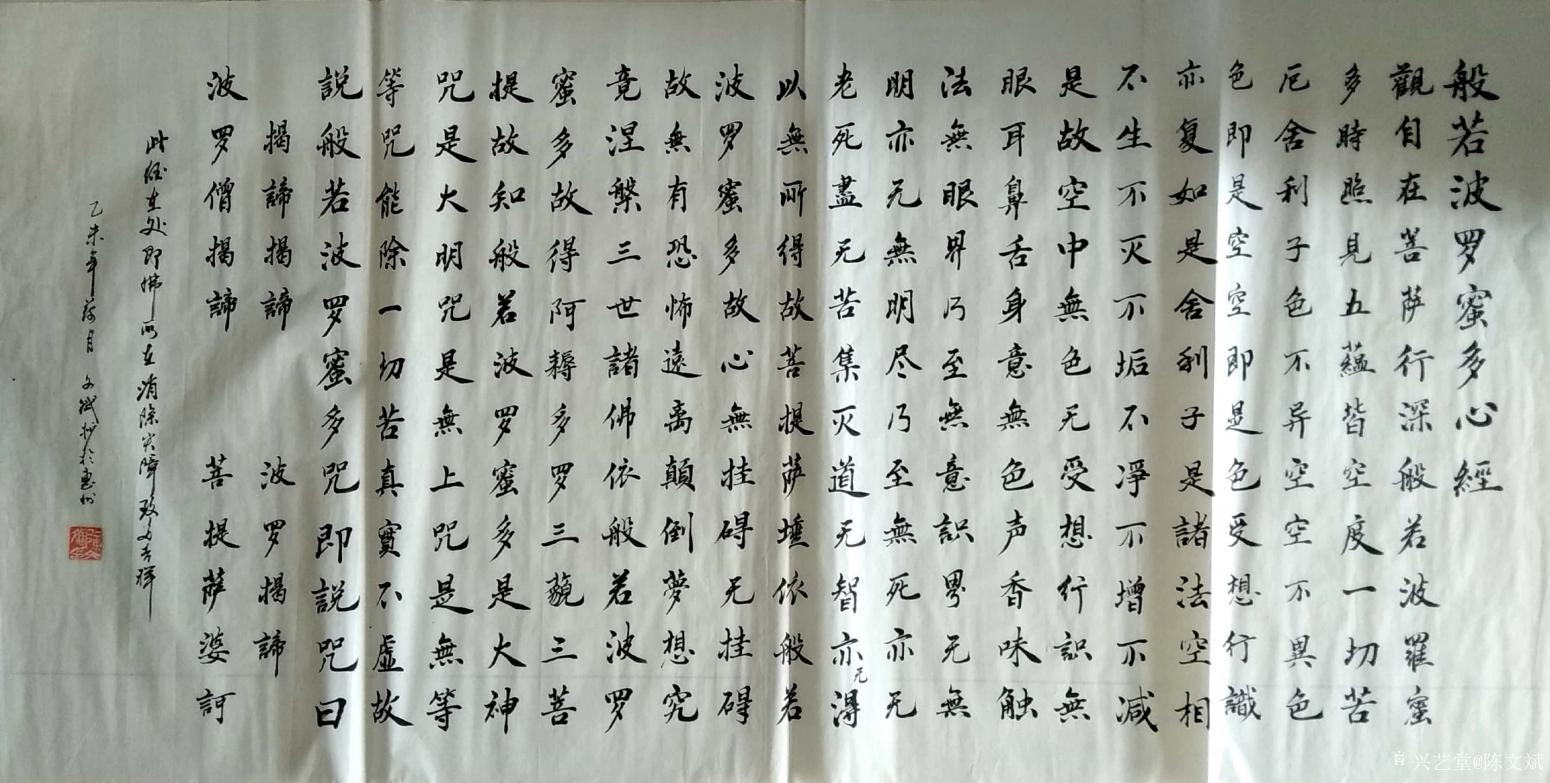 般若波罗蜜多心經
觀自在菩萨行深般若波羅蜜
多時照見五蘊皆空度一切苦
厄舍利子色不异空空不異色
色即是空空即是色受想行識
亦复如是舍利子是諸法空相
不生不灭不垢不凈不增不减
是故空中無色无受想行識無
眼耳鼻舌身意無色声香味触
法無眼界乃至無意識界无無
明亦无無明尽乃至無死亦无
老死盡无苦集灭道无智亦无得
以無所得故菩提萨埵依般若
波罗蜜多故心無挂碍无挂碍
故無有恐怖遠离顛倒夢想究
竟涅槃三世諸佛依般若波罗
蜜多故得阿耨多罗三藐三菩
提故知般若波罗蜜多是大神
咒是大明咒是無上咒是無等
等咒能除一切苦真實不虚故
説般若波罗蜜多咒即説咒曰
揭諦揭諦 波罗揭諦
波罗僧揭諦 菩提萨婆訶
此经在处即佛所在消除灾障致为吉祥
乙未年荷月文斌抄於惠州
兴艺堂@陈文斌